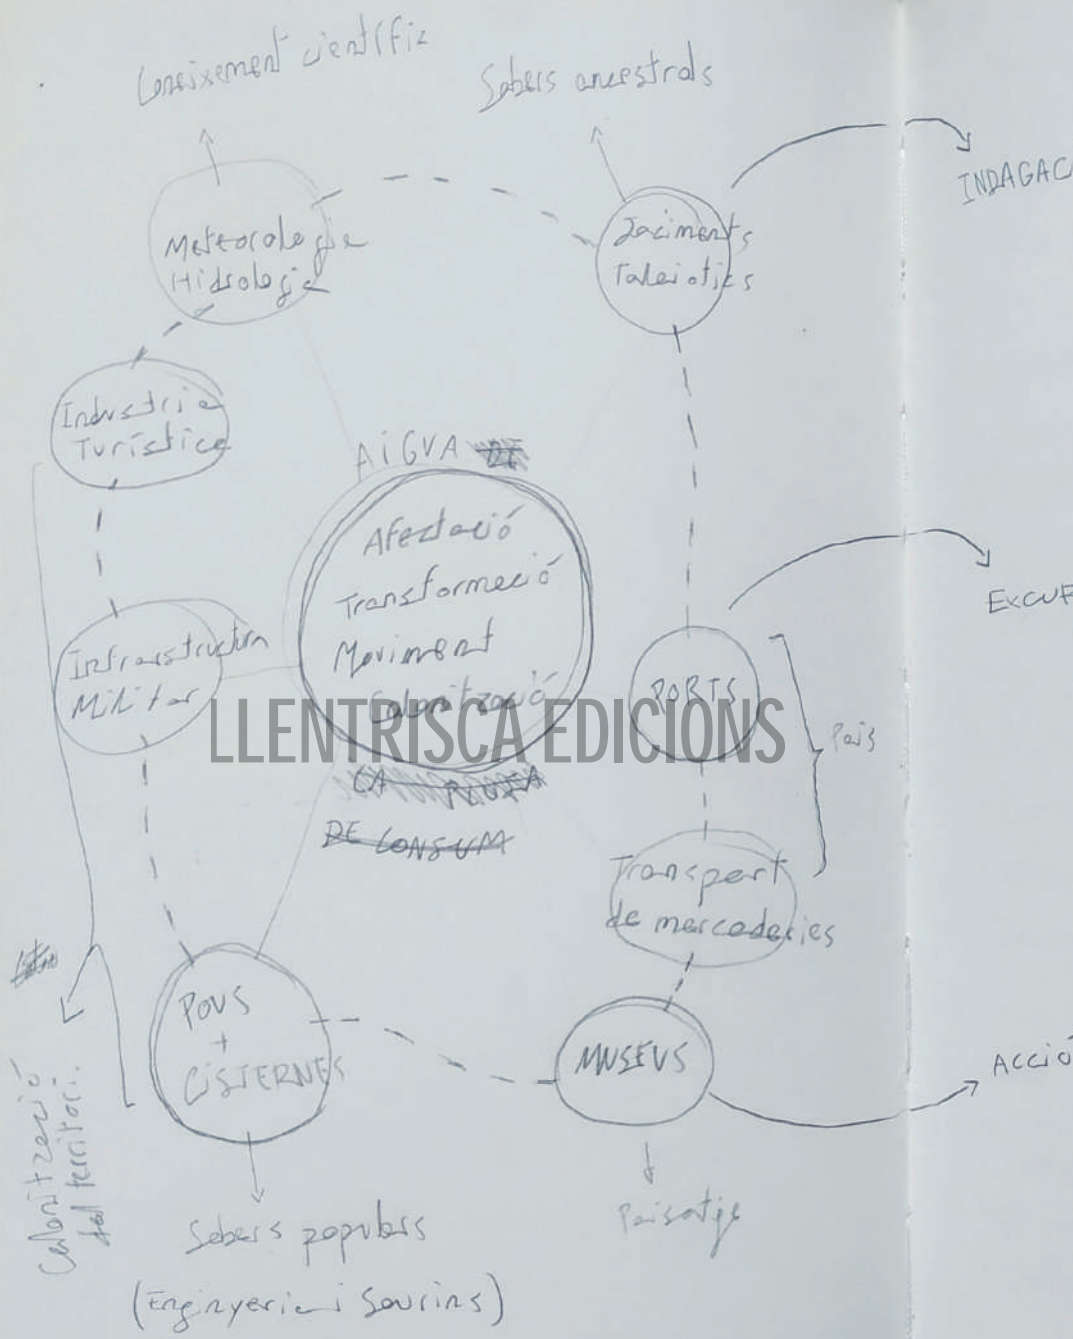 Coneixement científic
Sabers ancestrals
INDAGAC
Meteorologia
Hidrologia
Jaciments
Talaiotics
Industria
Turística
AiGUA
Afectació
Transformació
Moviment
Colonització
EXCUR
Infraestructura
Militar
PORTS
Pais
LLENTRISCA EDICIONS
DE CONSUM
Transport
de mercaderies
POUS
+
CiSTERNES
MUSEUS
ACCIÓ
Colonització
del territori.
Sabers populars
(Enginyeria i Saurins)
Paisatge